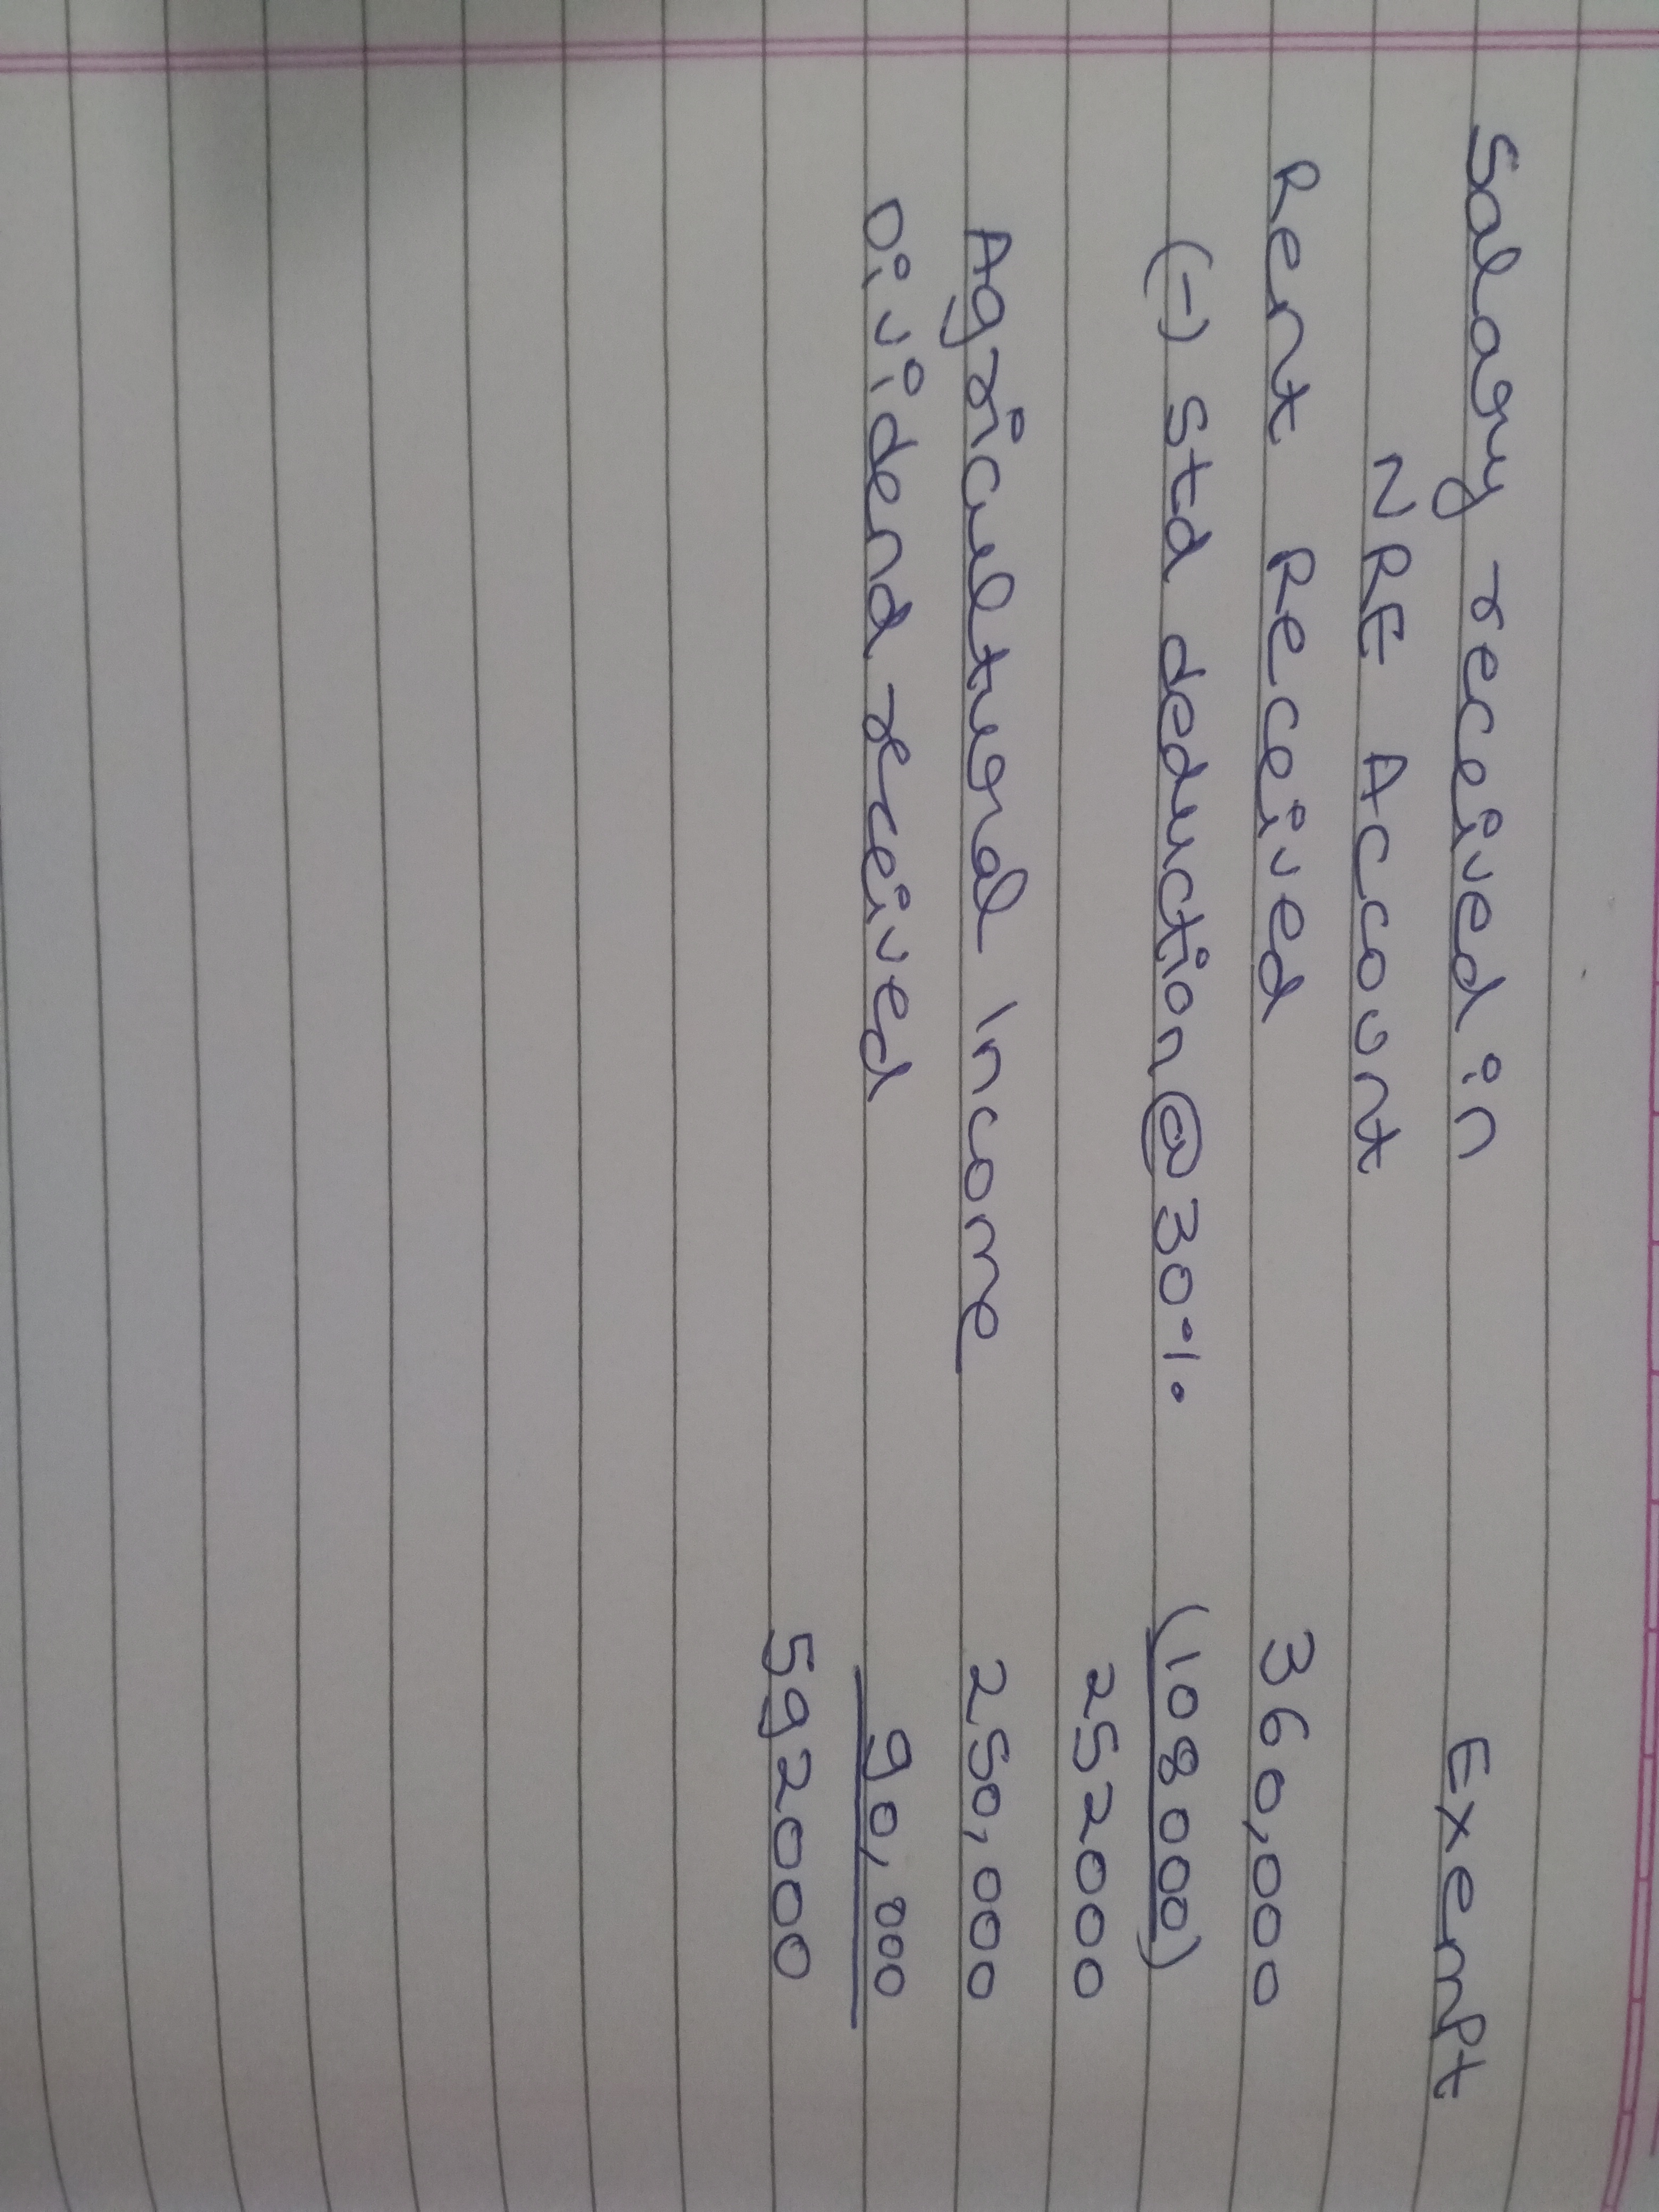 Salary received in Exempt
NRE Account
Rent Received 360,000
(-) Std deduction@30%. (108000)
252000
Agricultural Income 250,000
Dividend received 90,000
592000